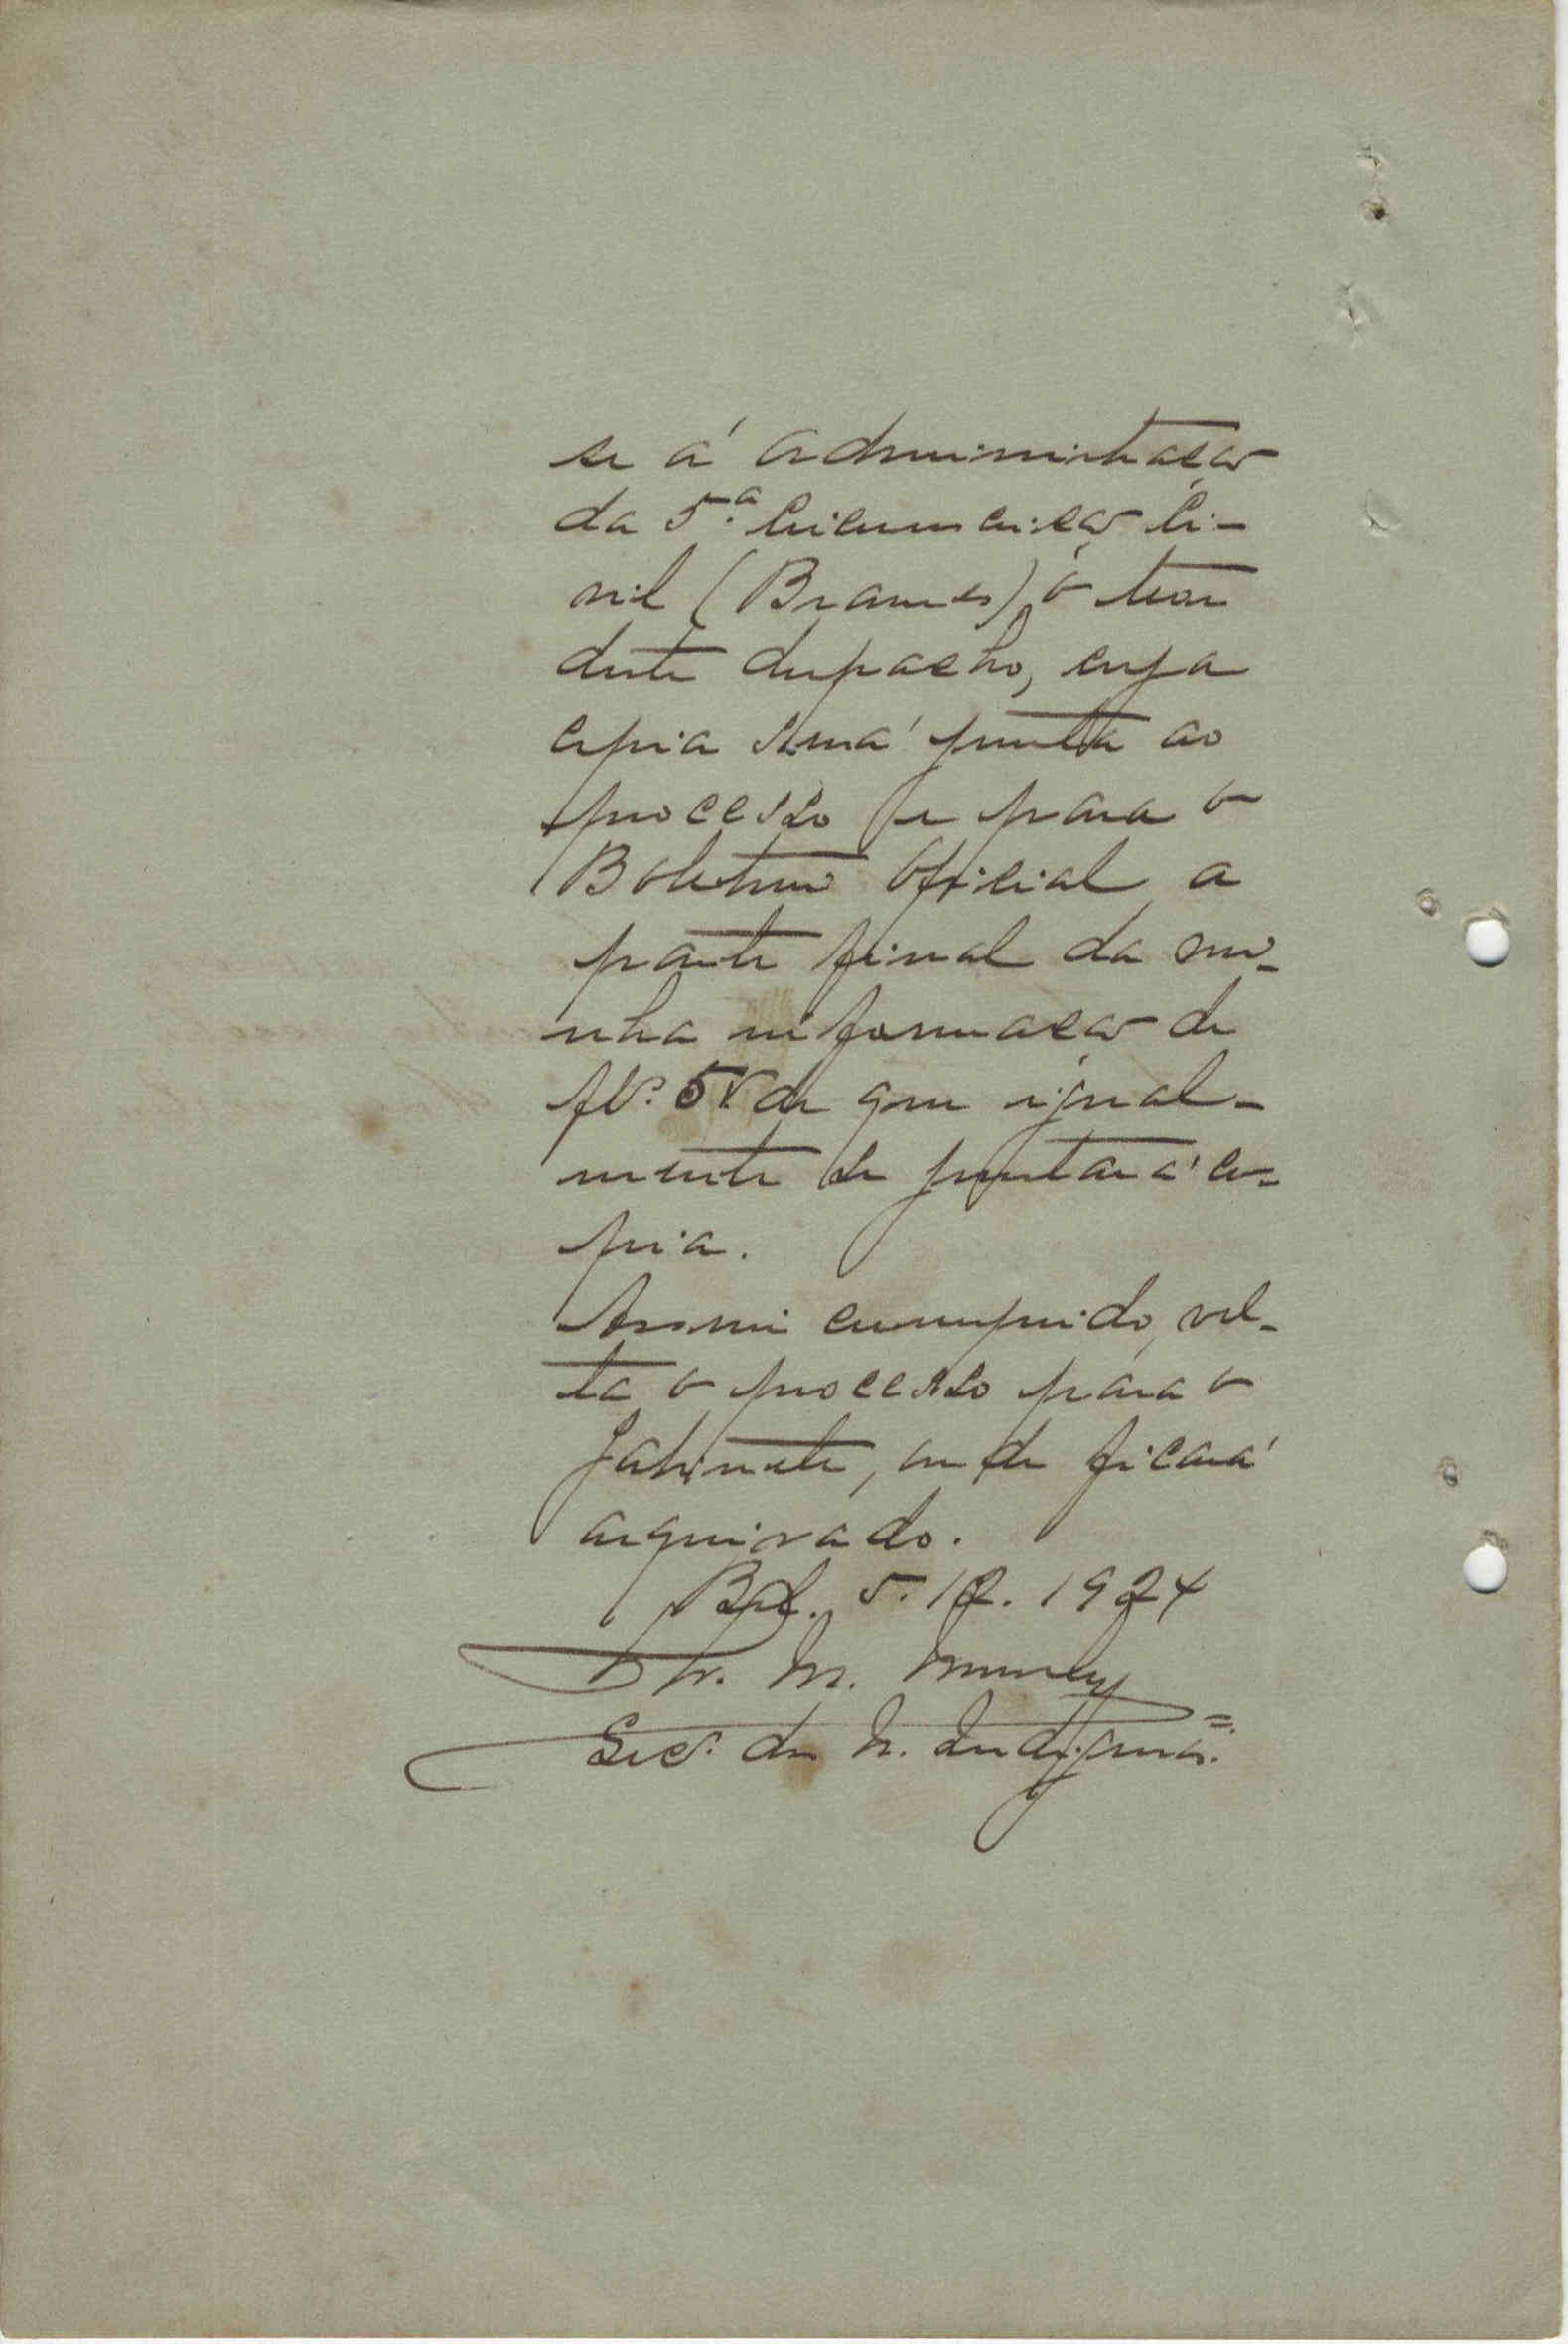 se á Administração
da 5.ª Circumscrição Ci-
vil (Brames) o teor
deste despacho, cuja
copia será junta ao
processo e para o
Boletim Oficial a
parte final da mi-
nha informação de
fls. 5v. de que igual-
mente se juntará co-
pia.
Assim cumprido, vol-
ta o processo para o
Gabinete, onde ficará
arquivado.
Bol. 5.12.1924
Sec. dos N. Indigenas.